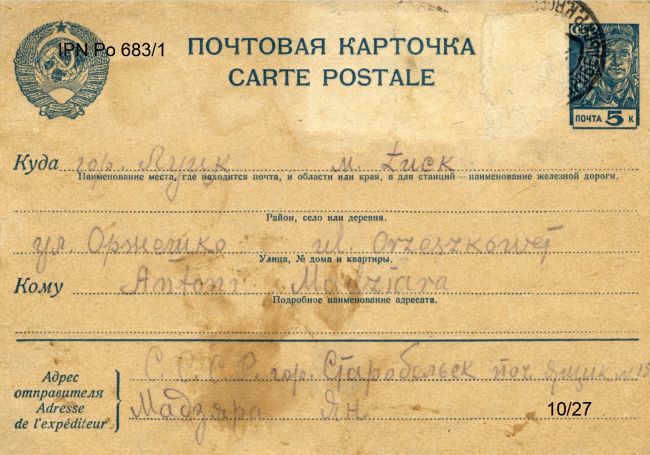 IPN Po 683/1
ПОЧТОВАЯ КАРТОЧКА
CARTE POSTALE
ПОЧТА 5 К
Куда гор. Луцк м. Łuck
Наименование места, где находится почта, и области или края, а для станций — наименование железной дороги.
Район, село или деревня.
ул. Оржешко ul. Orzeszkowej
Улица, № дома и квартиры.
Кому Antoni Madziara
Подробное наименование адресата.
Адрес отправителя
Adresse de l'expéditeur
С.С.С.Р. гор. Старобельск поч. ящик № 15
Мадзяра Ян
10/27